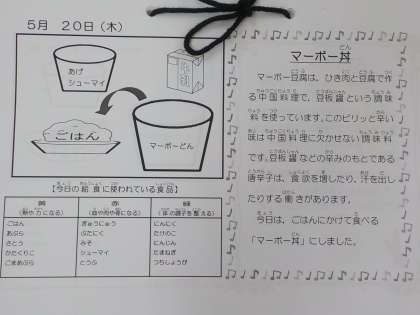 5月 20日(木)
あげ
シューマイ
牛乳
ごはん
マーボーどん
【今日の給食に使われている食品】
黄
(熱や力になる)
ごはん
あぶら
さとう
かたくりこ
ごまあぶら
赤
(血や肉や骨になる)
ぎゅうにゅう
ぶたにく
みそ
シューマイ
とうふ
緑
(体の調子を整える)
にんにく
たけのこ
にんじん
たまねぎ
つちしょうが
マーボー丼
マーボー豆腐は、ひき肉と豆腐で作
る中国料理で、豆板醤という調味
料を使っています。このピリッと辛い
味は中国料理に欠かせない調味料
です。豆板醤などの辛みのもとである
唐辛子は、食欲を増したり、汗を出し
たりする働きがあります。
今日は、ごはんにかけて食べる
「マーボー丼」にしました。